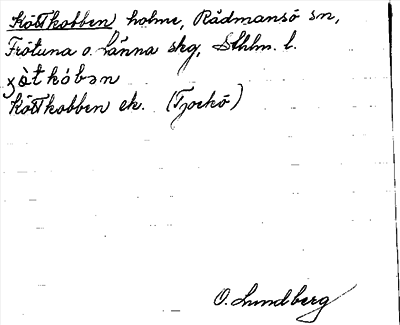 Köttkobben holme, Rådmansö sn,
Frötuna o. Länna skg, Sthlm. l.
Köttkobben ek. (Tjockö)
O. Lundberg